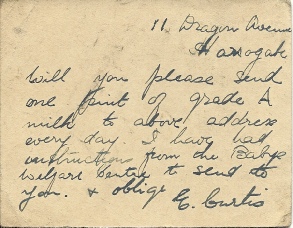 11 Dragon Avenue
Harrogate
Will you please send
one pint of grade A
milk to above address
every day. I have had
instructions from the Babys
welfare Centre to send to
you. & oblige
E. Curtis